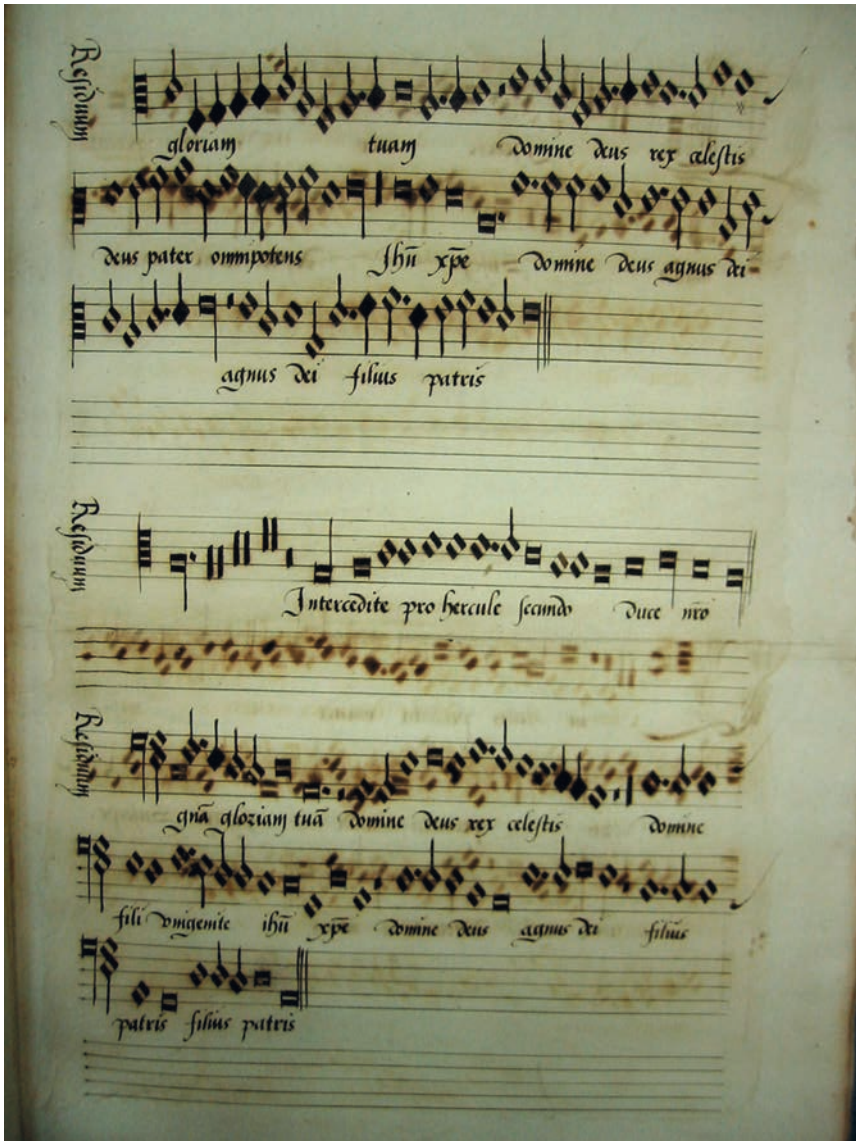 Residuum
gloriam tuam domine deus rex celestis
deus pater omnipotens Jhũ xp̃e domine deus agnus dei
agnus dei filius patris
Residuum
Intercedite pro hercule secundo duce nr̃o
Residuum
gnã gloriam tuã domine deus rex celestis domine
fili vnigenite ihũ xp̃e domine deus agnus dei filius
patris filius patris